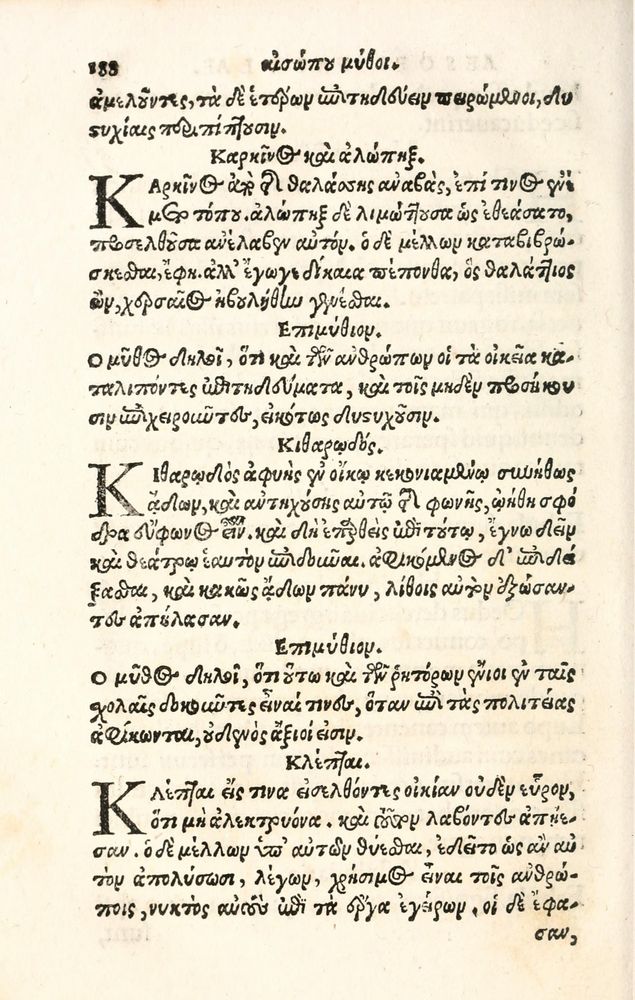 188 αἰσώπου μῦθοι.
ἀμελοῦντες, τὰ δὲ ἑτέρων ἐπιτηδεύειν πειρώμενοι, δυ
στυχίαις περιπίπτουσιν.
Καρκῖνος καὶ ἀλώπηξ.
ΚΑρκῖνος ἀπὸ τῆς θαλάσσης ἀναβὰς, ἐπί τινος ἐνέ
μετο τόπου. ἀλώπηξ δὲ λιμώττουσα ὡς ἐθεάσατο,
προσελθοῦσα ἀνέλαβεν αὐτόν. ὁ δὲ μέλλων καταβιβρώ-
σκεσθαι, ἔφη. ἀλλ' ἔγωγε δίκαια πέπονθα, ὃς θαλάττιος
ὢν, χερσαῖος ἠβουλήθην γενέσθαι.
Επιμύθιον.
Ο μῦθος δηλοῖ, ὅτι καὶ τῶν ἀνθρώπων οἱ τὰ οἰκεῖα κα-
ταλιπόντες ἐπιτηδεύματα, καὶ τοῖς μηδὲν προσήκου
σιν ἐπιχειροῦντες, εἰκότως δυστυχοῦσιν.
Κιθαρῳδός.
ΚΙθαρῳδὸς ἀφυὴς ἐν οἴκῳ κεκονιαμένῳ συνήθως
ᾄδων, καὶ ἀντηχούσης αὐτῷ τῆς φωνῆς, ᾠήθη σφό
δρα εὔφωνος εἶναι. καὶ δὴ ἐπαρθεὶς ἐπὶ τούτῳ, ἔγνω δεῖν
καὶ θεάτρῳ ἑαυτὸν ἐπιδοῦναι. ἀφικόμενος δ' ἐπιδεί
ξασθαι, καὶ κακῶς ᾄδων πάνυ, λίθοις αὐτὸν ἐξώσαν-
τες ἀπήλασαν.
Επιμύθιον.
Ο μῦθος δηλοῖ, ὅτι οὕτω καὶ τῶν ῥητόρων ἔνιοι ἐν ταῖς
σχολαῖς δοκοῦντες εἶναί τινες, ὅταν ἐπὶ τὰς πολιτείας
ἀφίκωνται, οὐδενὸς ἄξιοί εἰσιν.
Κλέπται.
ΚΛέπται εἴς τινα εἰσελθόντες οἰκίαν οὐδὲν εὗρον,
ὅτι μὴ ἀλεκτρυόνα. καὶ τοῦτον λαβόντες ἀπῄε-
σαν. ὁ δὲ μέλλων ὑπ' αὐτῶν θύεσθαι, ἐδεῖτο ὡς ἂν αὐ
τὸν ἀπολύσωσι, λέγων, χρήσιμος εἶναι τοῖς ἀνθρώ-
ποις, νυκτὸς αὐτοὺς ἐπὶ τὰ ἔργα ἐγείρων. οἱ δὲ ἔφα-
σαν,